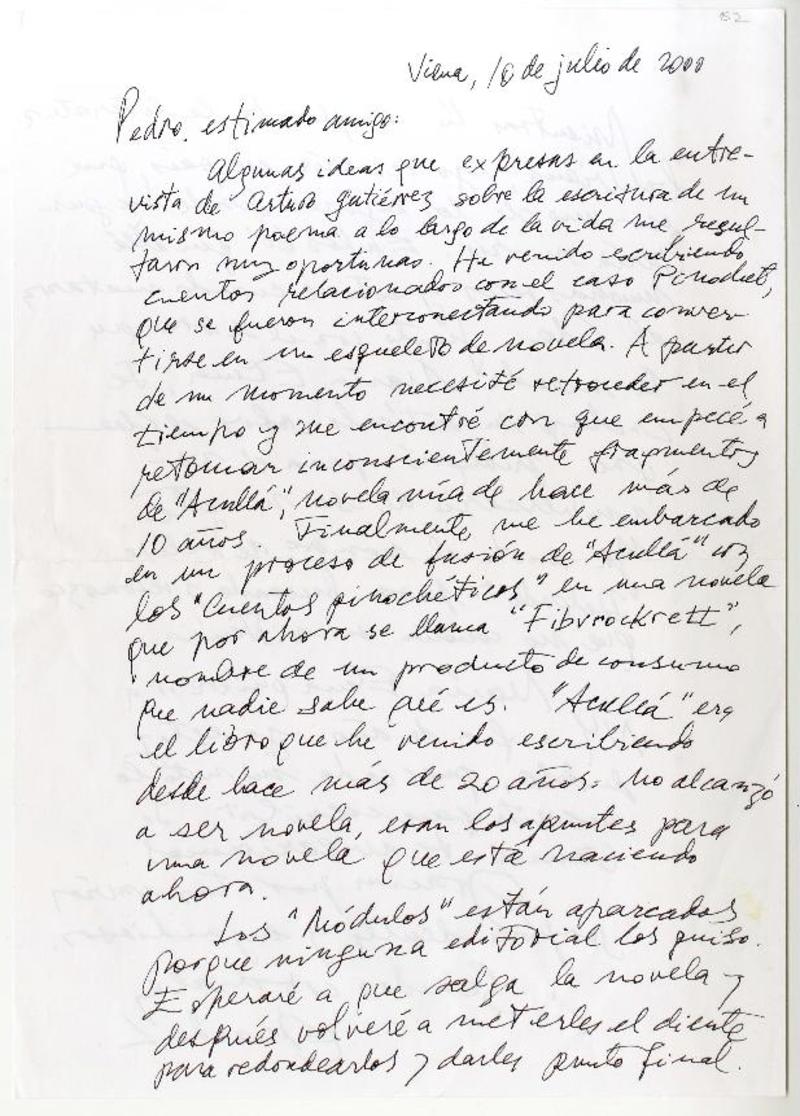 152
Viena, 10 de julio de 2000
Pedro, estimado amigo:
Algunas ideas que expresas en la entre-
vista de Arturo Gutiérrez sobre la escritura de un
mismo poema a lo largo de la vida me resul-
taron muy oportunas. He venido escribiendo
cuentos relacionados con el caso Pinochet,
que se fueron interconectando para conver-
tirse en un esqueleto de novela. A partir
de un momento necesité retroceder en el
tiempo y me encontré con que empecé a
retomar inconscientemente fragmentos
de "Acullá", novela mía de hace más de
10 años. Finalmente me he embarcado
en un proceso de fusión de "Acullá" con
los "Cuentos pinochéticos" en una novela
que por ahora se llama "Fibvrockrett",
nombre de un producto de consumo
que nadie sabe qué es. "Acullá" era
el libro que he venido escribiendo
desde hace más de 20 años. No alcanzó
a ser novela, eran los apuntes para
una novela que está naciendo
ahora.
Los "Módulos" están aparcados
porque ninguna editorial los quiso.
Esperaré a que salga la novela y
después volveré a meterles el diente
para redondearlos y darles punto final.